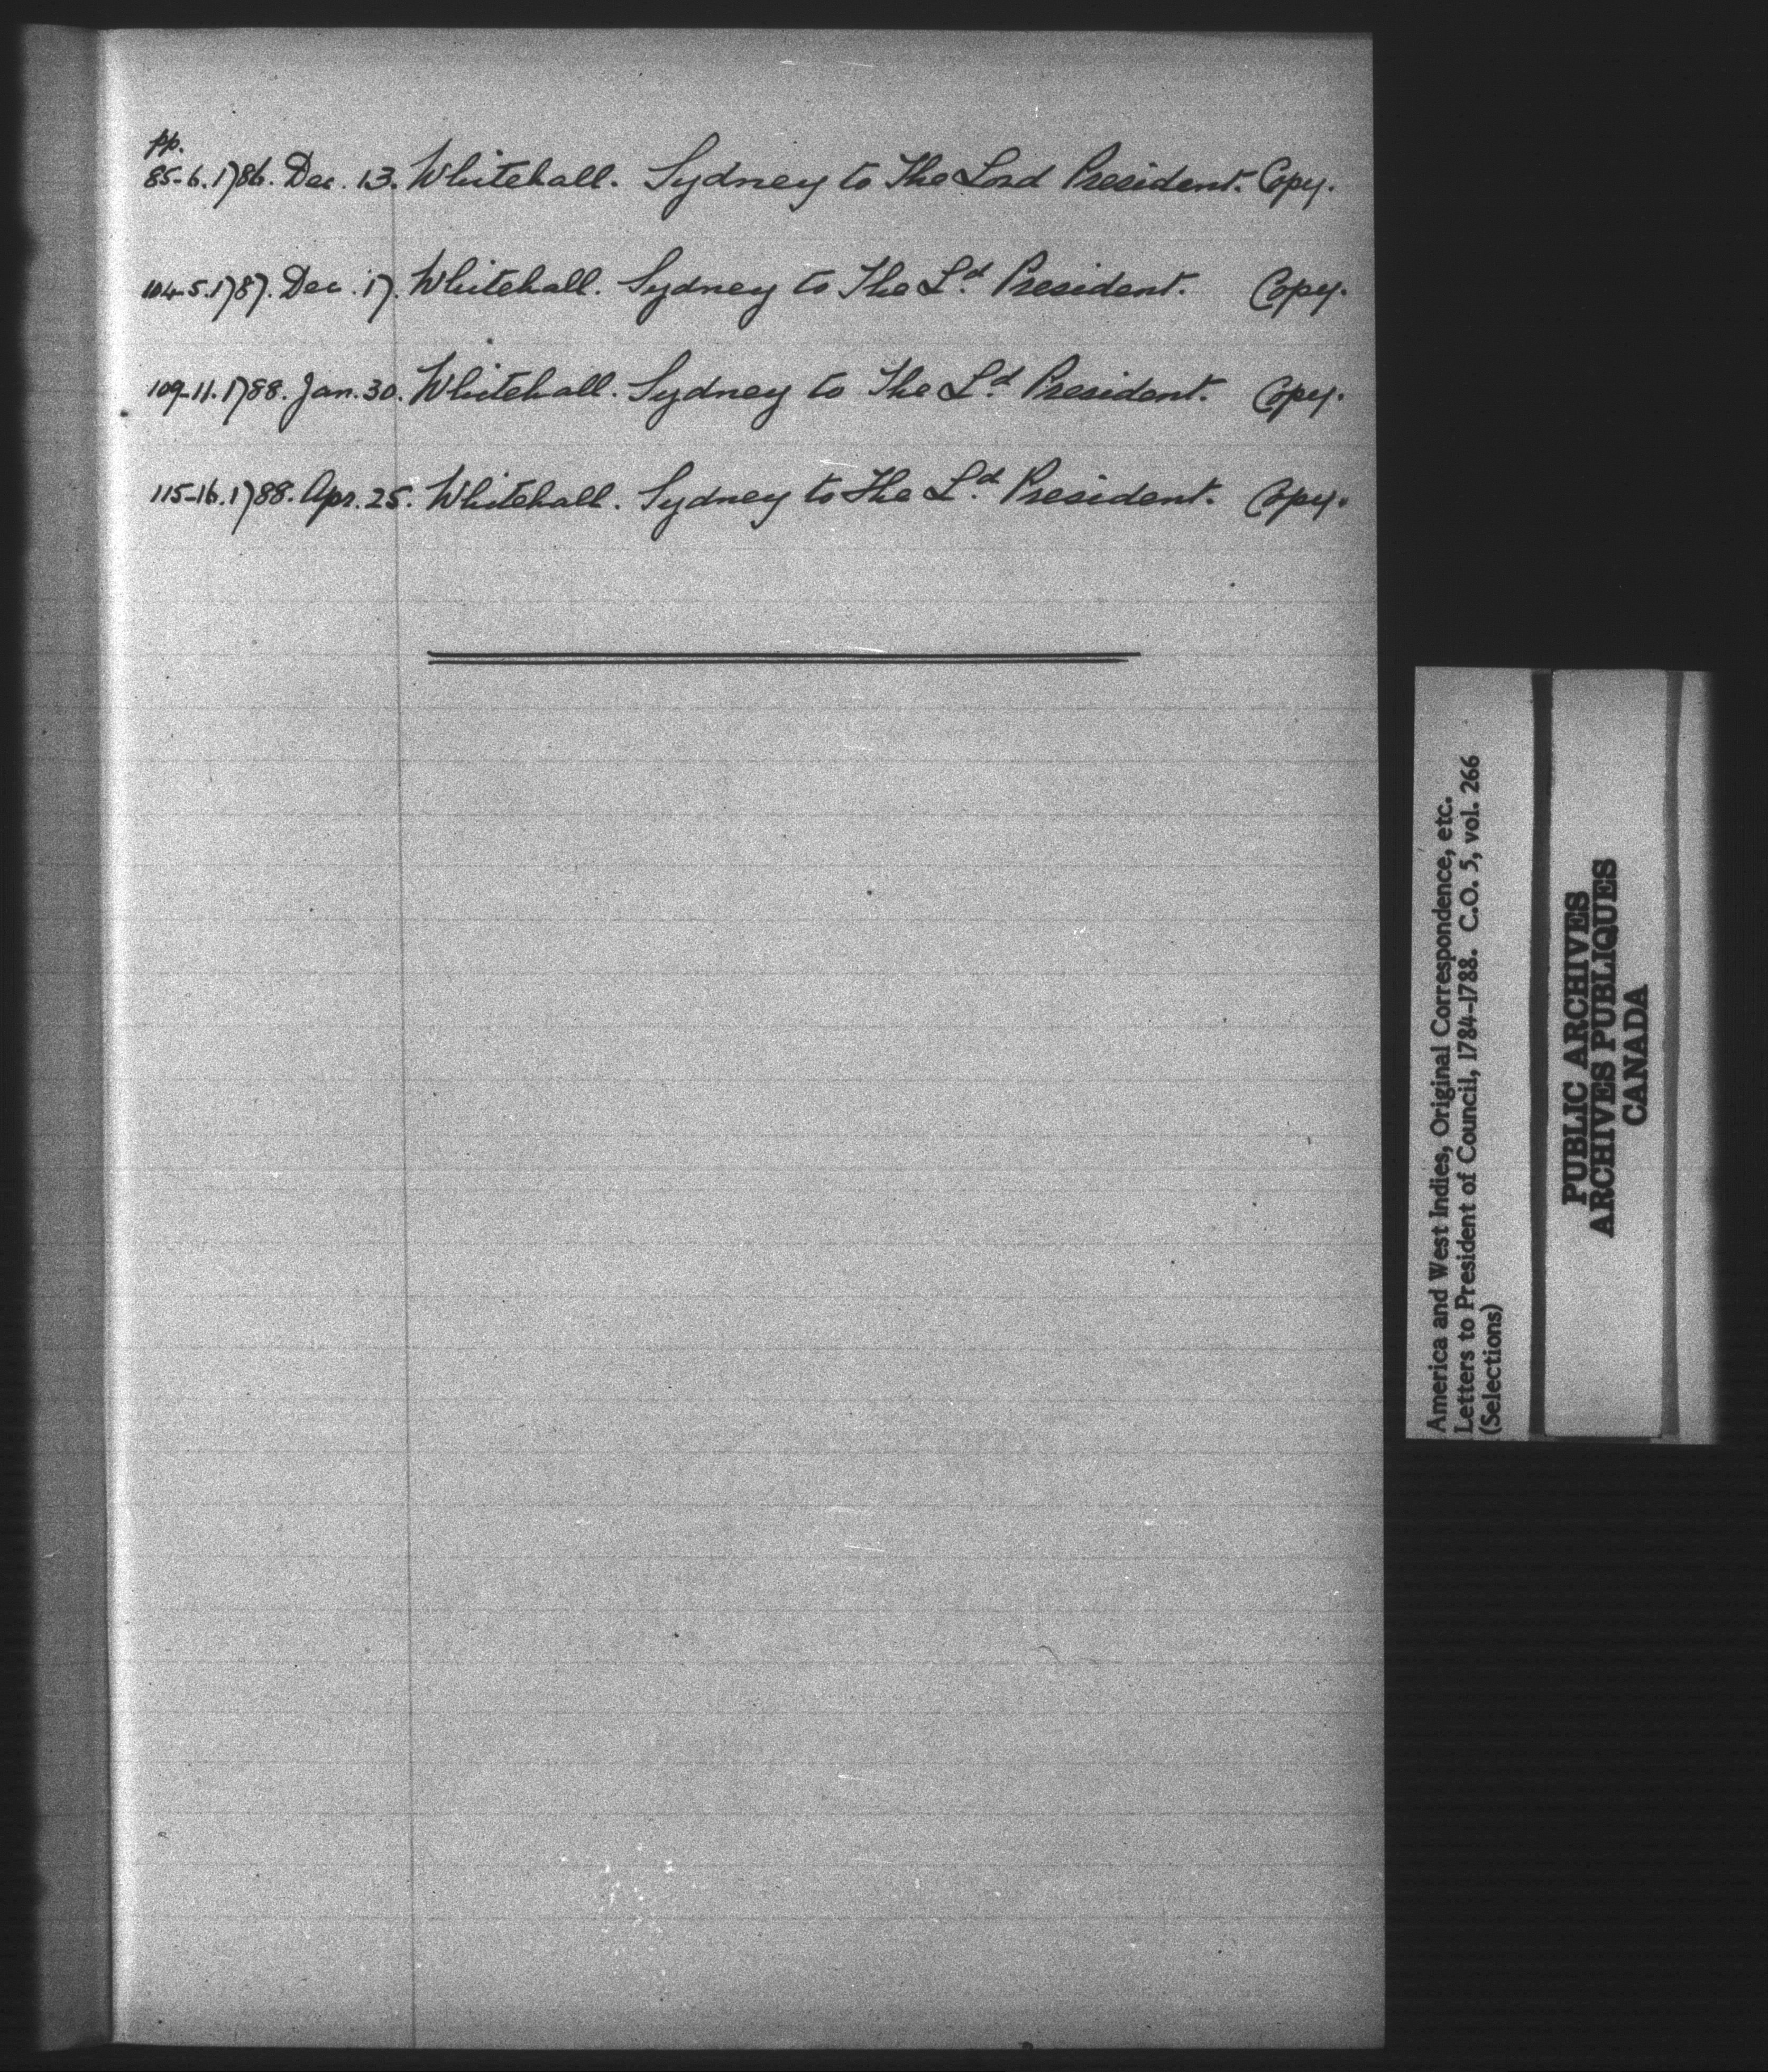 pp.
85-6. 1786. Dec. 13. Whitehall. Sydney to The Lord President. Copy.
104-5. 1787. Dec. 17. Whitehall. Sydney to The Ld. President. Copy.
109-11. 1788. Jan. 30. Whitehall. Sydney to The Ld. President. Copy.
115-16. 1788. Apr. 25. Whitehall. Sydney to The Ld. President. Copy.
America and West Indies, Original Correspondence, etc.
Letters to President of Council, 1784-1788. C.O. 5, vol. 266
(Selections)
PUBLIC ARCHIVES
ARCHIVES PUBLIQUES
CANADA